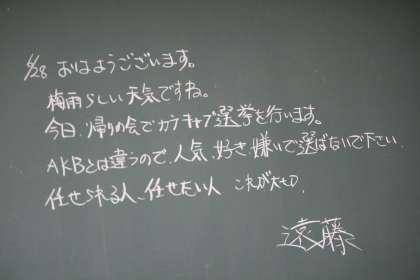 6/28 おはようございます。
梅雨らしい天気ですね。
今日、帰りの会でカテキャプ選挙を行います。
AKBとは違うので、人気、好き、嫌いで選ばないで下さい。
任せられる人、任せたい人 これが大切。
遠藤